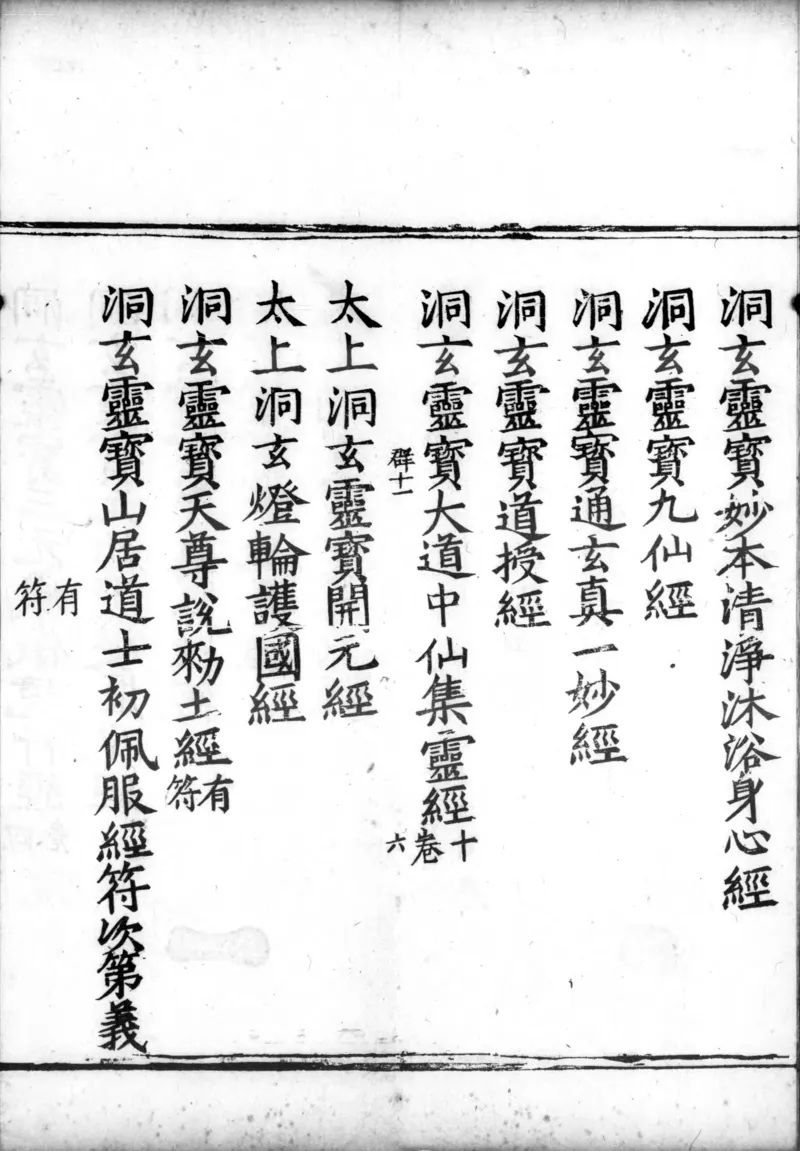 洞玄靈寶妙本清淨沐浴身心經
洞玄靈寶九仙經
洞玄靈寶通玄真一妙經
洞玄靈寶道授經
洞玄靈寶大道中仙集靈經十卷六
群十一
太上洞玄靈寶開元經
太上洞玄燈輪護國經
洞玄靈寶天尊說勑土經有符
洞玄靈寶山居道士初佩服經符次第義
有符